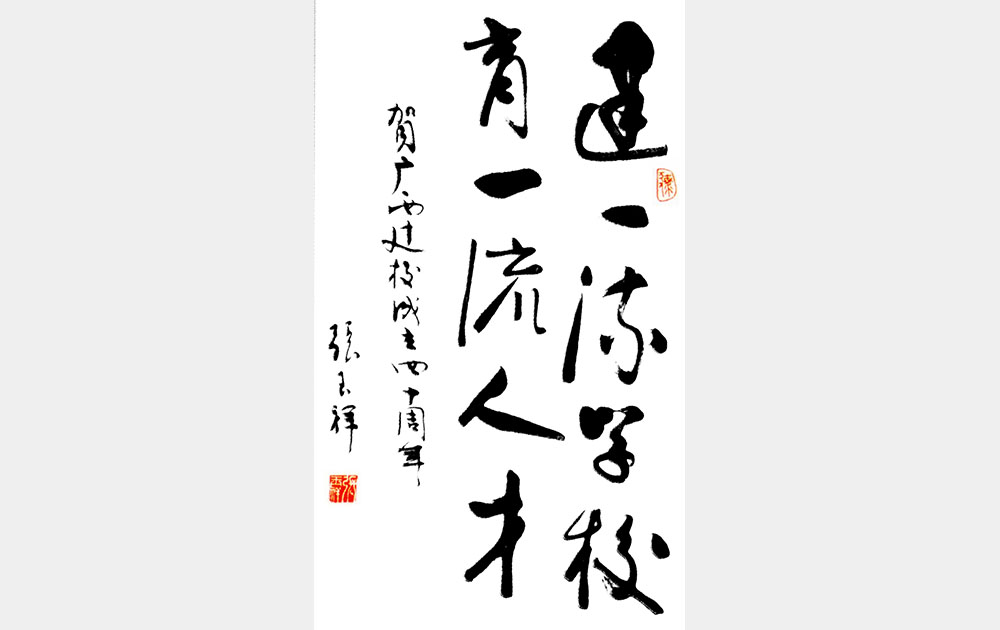 建一流学校
育一流人才
贺广西建校成立四十周年
張玉祥